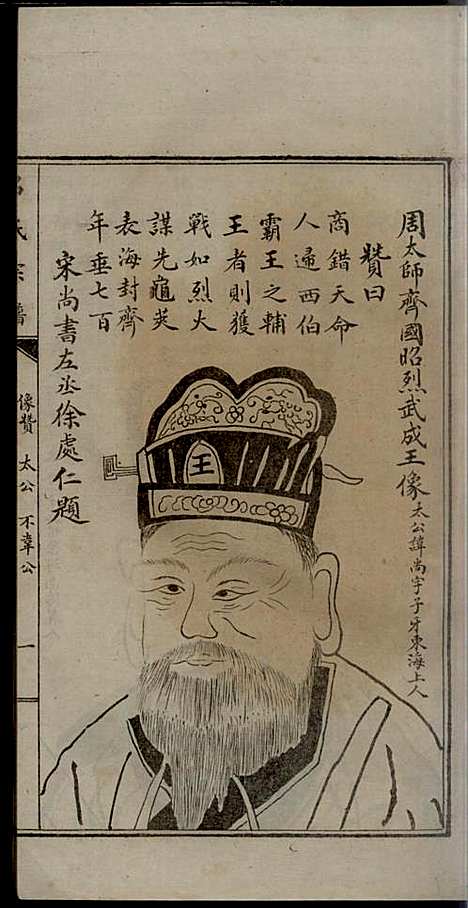 周太師齊國昭烈武成王像太公諱尚字子牙東海上人
贊曰
商錯天命
人歸西伯
霸王之輔
王者則獲
戰如烈火
謀先龜筴
表海封齊
年垂七百
宋尚書左丞徐處仁題
王
呂氏宗譜
像贊
太公
不韋公
一